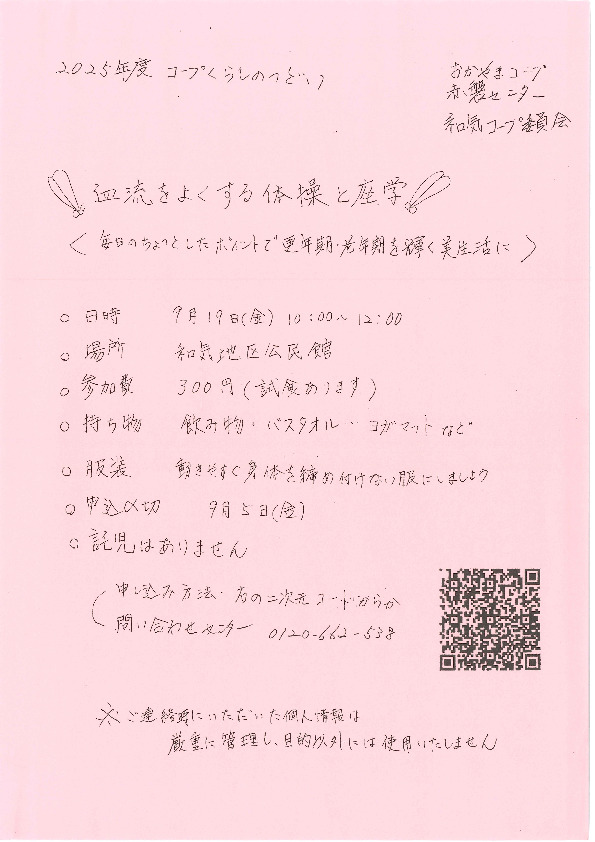 2025年度 コープくらしのつどい
おかやまコープ
赤磐センター
和気コープ委員会
血流をよくする体操と座学
〈毎日のちょっとしたポイントで更年期・老年期を輝く美生活に〉
○ 日時 9月19日(金) 10:00~12:00
○ 場所 和気地区公民館
○ 参加費 300円(試食あります)
○ 持ち物 飲み物・バスタオル・ヨガマットなど
○ 服装 動きやすく身体を締め付けない服にしましょう
○ 申込〆切 9月5日(金)
○ 託児はありません
申し込み方法・右の二次元コードからか
問い合わせセンター 0120-662-538
※ ご連絡票にいただいた個人情報は
厳重に管理し、目的以外には使用いたしません